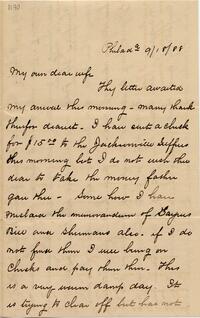 1190
Philada 9/18/88
My own dear wife
Thy letter awaited
my arrival this morning - many thanks
therefor dearest. I have sent a check
for $15.00 to the Jacksonville Suffrs
this morning but I do not wish thee
dear to take the money father
gave thee - Some how I have
mislaid the memorandum of
Bill and Shermans also. if I do
not find them I will bring on
checks and pay them then. This
is a very warm damp day. It
is trying to clear off but has not